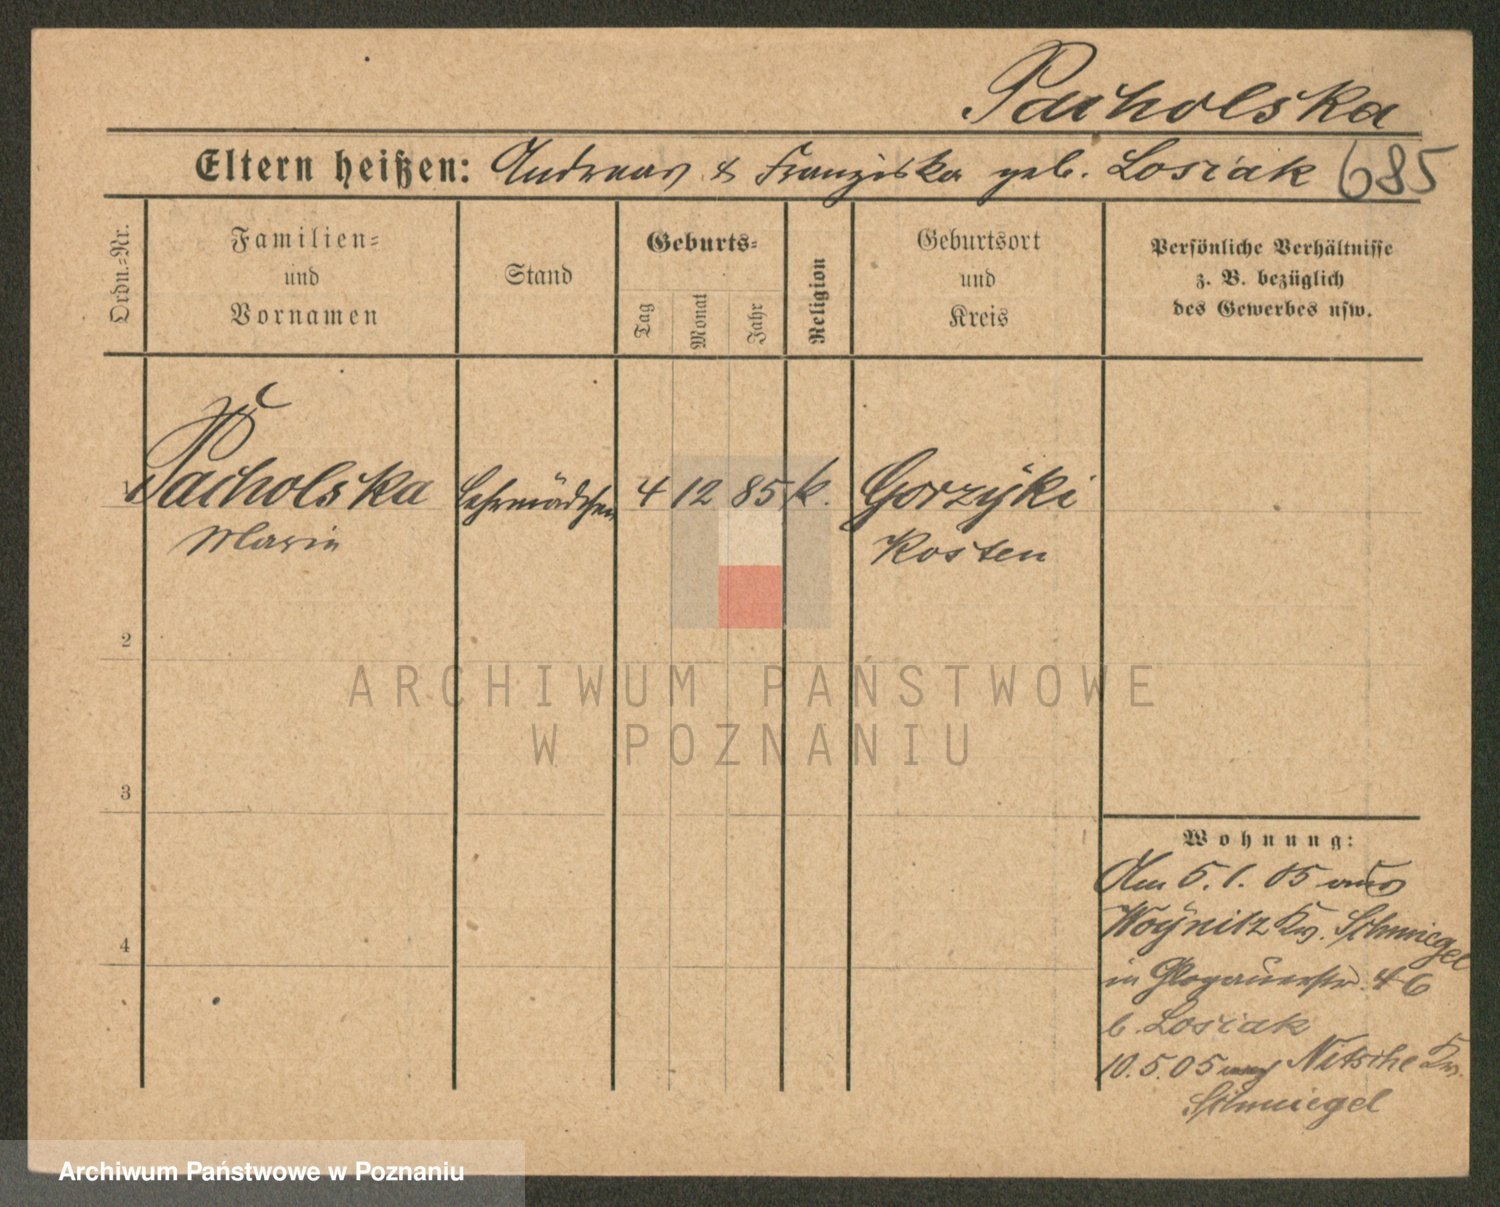 Pacholska
Eltern heißen: Andreas & Franziska geb. Losiak 685
Ordn.-Nr.
Familien- und Vornamen
Stand
Geburts-
Tag
Monat
Jahr
Religion
Geburtsort und Kreis
Persönliche Verhältnisse
z. B. bezüglich
des Gewerbes usw.
Pacholska Lehrmädchen 4 12 85 k. Gorzyki
Marie Kosten
2
3
4
Wohnung:
Am 5. 1. 05 aus
Woynitz Krs. Schmiegel
in Glogauerstr. 46
b. Losiak
10. 5. 05 nach Nitsche Krs.
Schmiegel
ARCHIWUM PAŃSTWOWE
W POZNANIU
Archiwum Państwowe w Poznaniu